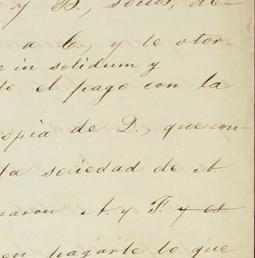 y B., socio, de-
a C., y le otor-
in solidum y
el pago con la
opia de D., que con-
la sociedad de A
naron A. y F. y es
en pagarle lo que